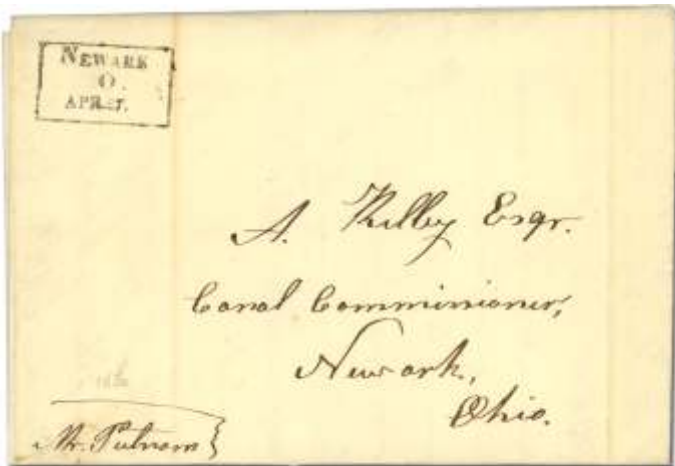 NEWARK
O.
APR. 27.
A. Kelley Esqr.
Canal Commissioner,
Newark,
Ohio.
Mr. Putnam